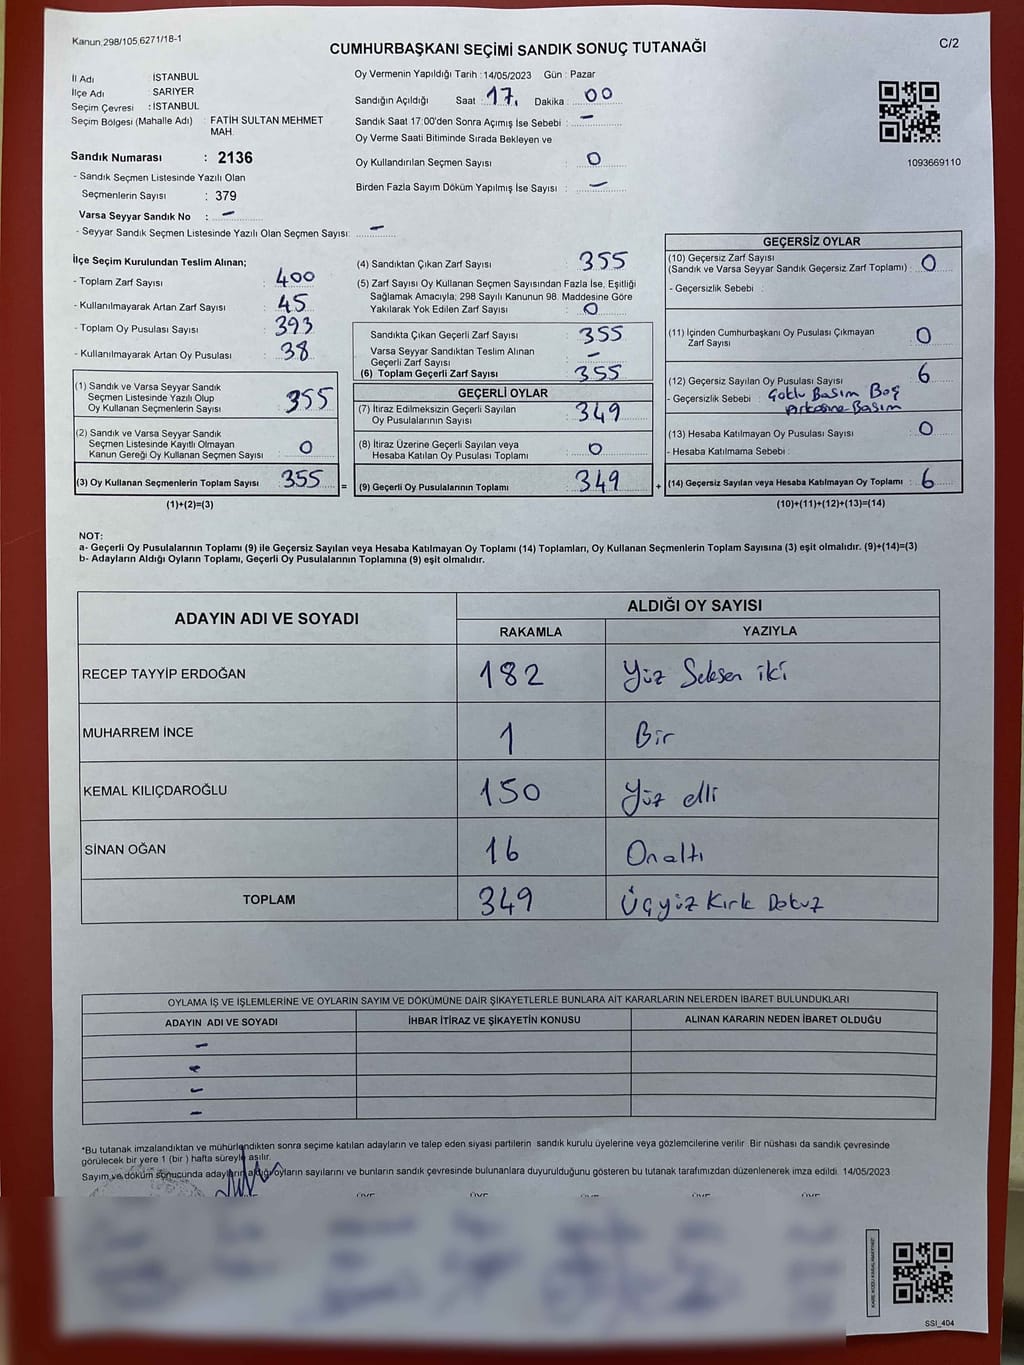 Kanun.298/105,6271/18-1
CUMHURBAŞKANI SEÇİMİ SANDIK SONUÇ TUTANAĞI
C/2
İl Adı : İSTANBUL
İlçe Adı : SARIYER
Seçim Çevresi : İSTANBUL
Seçim Bölgesi (Mahalle Adı) : FATİH SULTAN MEHMET
MAH.
Sandık Numarası : 2136
- Sandık Seçmen Listesinde Yazılı Olan
Seçmenlerin Sayısı : 379
Varsa Seyyar Sandık No : -
- Seyyar Sandık Seçmen Listesinde Yazılı Olan Seçmen Sayısı: -
Oy Vermenin Yapıldığı Tarih : 14/05/2023 Gün : Pazar
Sandığın Açıldığı Saat : 17. Dakika : 00
Sandık Saat 17:00'den Sonra Açımış İse Sebebi : -
Oy Verme Saati Bitiminde Sırada Bekleyen ve
Oy Kullandırılan Seçmen Sayısı : 0
Birden Fazla Sayım Döküm Yapılmış İse Sayısı : -
1093669110
İlçe Seçim Kurulundan Teslim Alınan;
- Toplam Zarf Sayısı : 400
- Kullanılmayarak Artan Zarf Sayısı : 45
- Toplam Oy Pusulası Sayısı : 393
- Kullanılmayarak Artan Oy Pusulası : 38
(1) Sandık ve Varsa Seyyar Sandık
Seçmen Listesinde Yazılı Olup
Oy Kullanan Seçmenlerin Sayısı : 355
(2) Sandık ve Varsa Seyyar Sandık
Seçmen Listesinde Kayıtlı Olmayan
Kanun Gereği Oy Kullanan Seçmen Sayısı : 0
(3) Oy Kullanan Seçmenlerin Toplam Sayısı : 355
(1)+(2)=(3)
=
(4) Sandıktan Çıkan Zarf Sayısı : 355
(5) Zarf Sayısı Oy Kullanan Seçmen Sayısından Fazla İse, Eşitliği
Sağlamak Amacıyla; 298 Sayılı Kanunun 98. Maddesine Göre
Yakılarak Yok Edilen Zarf Sayısı : 0
Sandıkta Çıkan Geçerli Zarf Sayısı : 355
Varsa Seyyar Sandıktan Teslim Alınan
Geçerli Zarf Sayısı : -
(6) Toplam Geçerli Zarf Sayısı : 355
GEÇERLİ OYLAR
(7) İtiraz Edilmeksizin Geçerli Sayılan
Oy Pusulalarının Sayısı : 349
(8) İtiraz Üzerine Geçerli Sayılan veya
Hesaba Katılan Oy Pusulası Toplamı : 0
(9) Geçerli Oy Pusulalarının Toplamı : 349
+
GEÇERSİZ OYLAR
(10) Geçersiz Zarf Sayısı
(Sandık ve Varsa Seyyar Sandık Geçersiz Zarf Toplamı) : 0
- Geçersizlik Sebebi :
(11) İçinden Cumhurbaşkanı Oy Pusulası Çıkmayan
Zarf Sayısı : 0
(12) Geçersiz Sayılan Oy Pusulası Sayısı : 6
- Geçersizlik Sebebi : Çoklu Basım Boş
Arkasına Basım
(13) Hesaba Katılmayan Oy Pusulası Sayısı : 0
- Hesaba Katılmama Sebebi :
(14) Geçersiz Sayılan veya Hesaba Katılmayan Oy Toplamı : 6
(10)+(11)+(12)+(13)=(14)
NOT:
a- Geçerli Oy Pusulalarının Toplamı (9) ile Geçersiz Sayılan veya Hesaba Katılmayan Oy Toplamı (14) Toplamları, Oy Kullanan Seçmenlerin Toplam Sayısına (3) eşit olmalıdır. (9)+(14)=(3)
b- Adayların Aldığı Oyların Toplamı, Geçerli Oy Pusulalarının Toplamına (9) eşit olmalıdır.
ADAYIN ADI VE SOYADI ALDIĞI OY SAYISI
RAKAMLA YAZIYLA
RECEP TAYYİP ERDOĞAN 182 Yüz Seksen iki
MUHARREM İNCE 1 Bir
KEMAL KILIÇDAROĞLU 150 Yüz elli
SİNAN OĞAN 16 Onaltı
TOPLAM 349 Üçyüz Kırk Dokuz
OYLAMA İŞ VE İŞLEMLERİNE VE OYLARIN SAYIM VE DÖKÜMÜNE DAİR ŞİKAYETLERLE BUNLARA AİT KARARLARIN NELERDEN İBARET BULUNDUKLARI
ADAYIN ADI VE SOYADI İHBAR İTİRAZ VE ŞİKAYETİN KONUSU ALINAN KARARIN NEDEN İBARET OLDUĞU
-
-
-
-
*Bu tutanak imzalandıktan ve mühürlendikten sonra seçime katılan adayların ve talep eden siyasi partilerin sandık kurulu üyelerine veya gözlemcilerine verilir. Bir nüshası da sandık çevresinde
görülecek bir yere 1 (bir ) hafta süreyle asılır.
Sayım ve döküm sonucunda adayların aldığı oyların sayılarını ve bunların sandık çevresinde bulunanlara duyurulduğunu gösteren bu tutanak tarafımızdan düzenlenerek imza edildi. 14/05/2023
SSİ_404